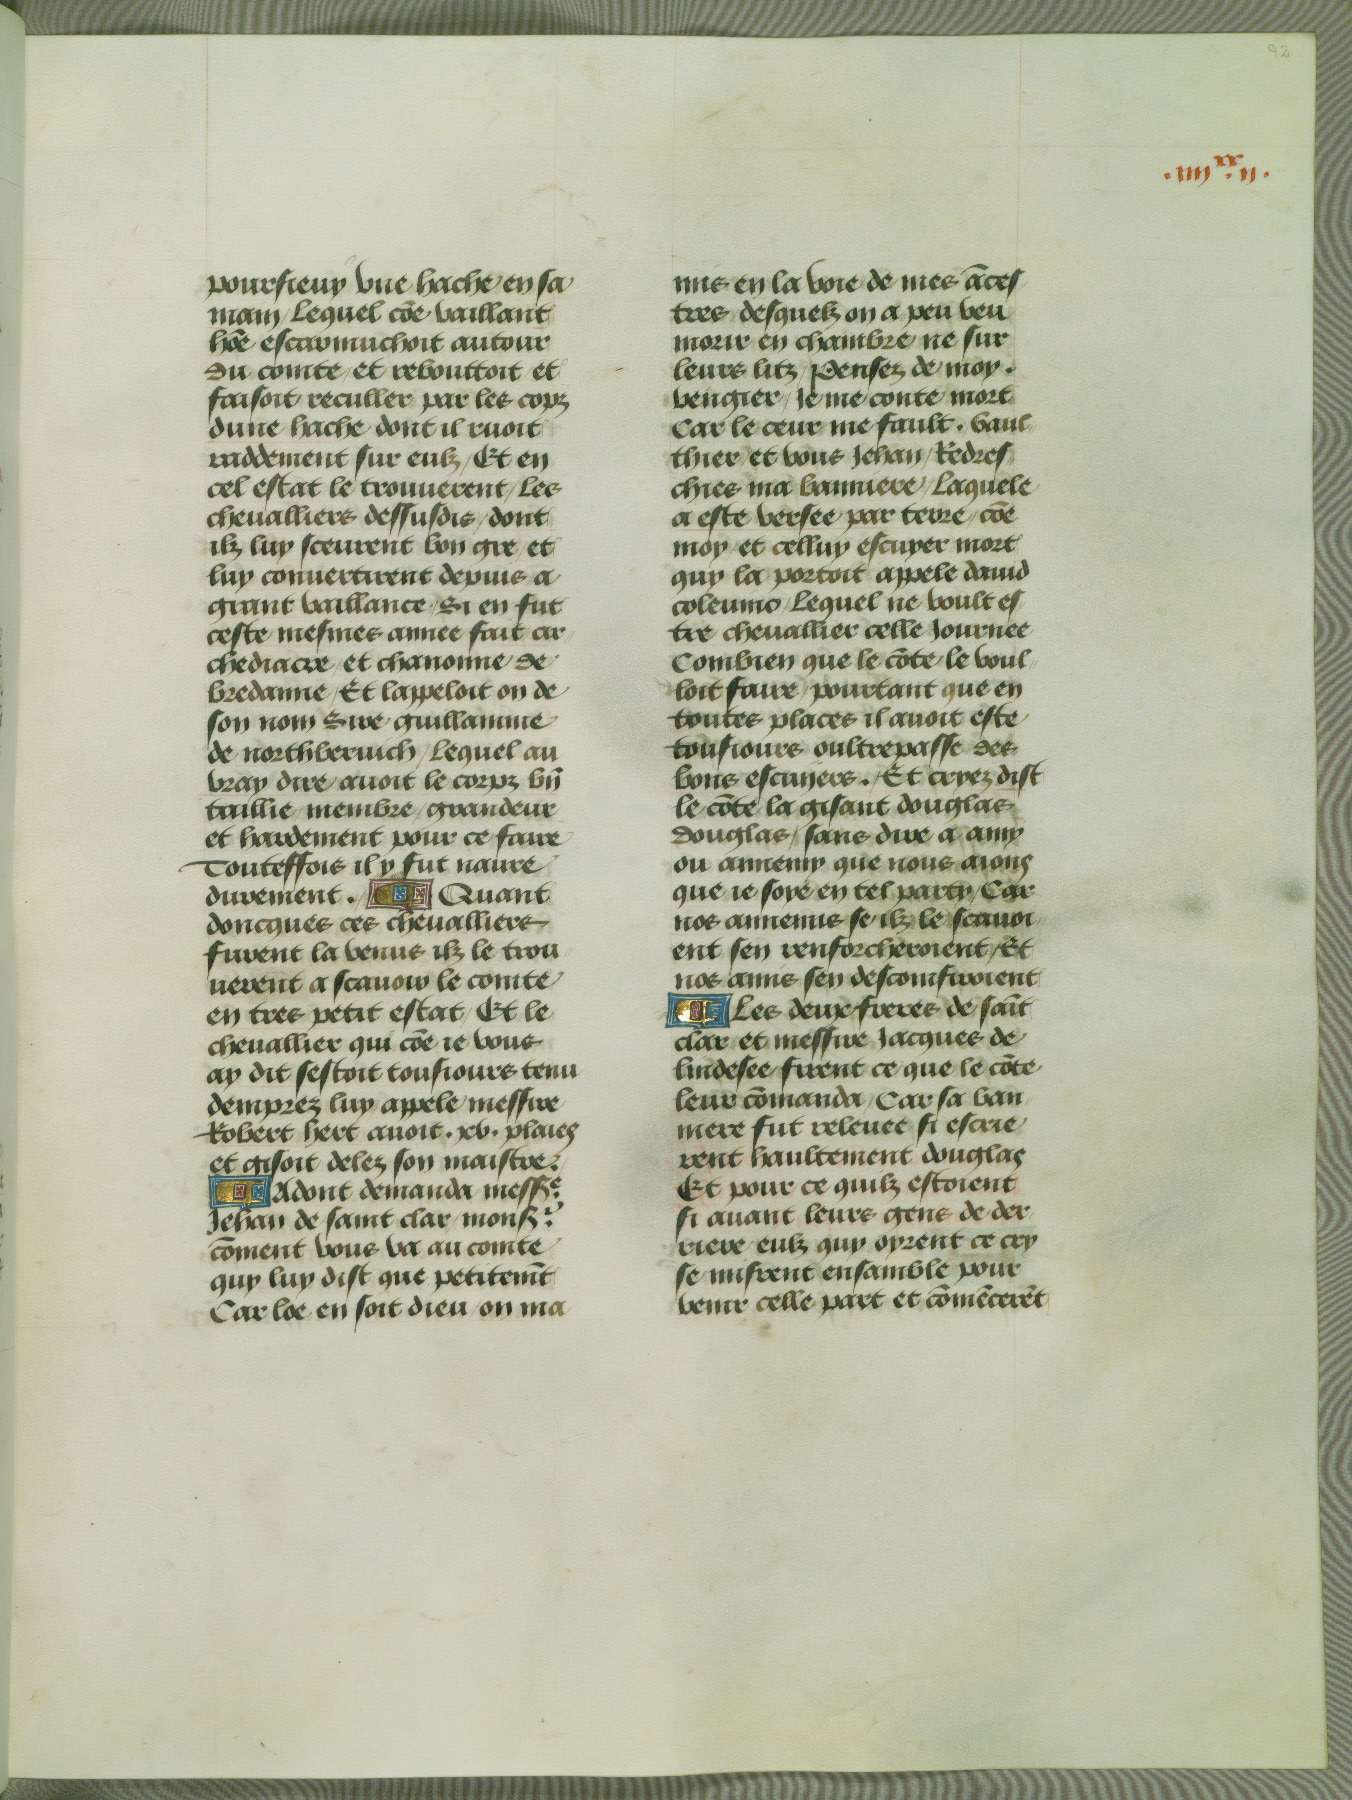 92
.iiij.xx ij.
poursieuy vne hache en sa
main / Lequel cōe vaillant
hōe escarmuchoit autour
du comte / et rebouttoit et
faisoit reculler par les copz
dune hache dont il ruoit
raddement sur eulz / Et en
cel estat le trouuerent / Les
cheualliers dessusdis / dont
ilz luy sceurent bon gre / et
luy conuertirent depuis a
grant vaillance / Si en fut
ceste mesmes annee fait ar
chediacre et chanonne de
bredanne / Et lappeloit on de
son nom Sire guillamme
de northberuich / Lequel au
vray dire / auoit le corpz bn̄
taillie / membre / grandeur
et hardement pour ce faire
Touteffois il y fut naure
durement . Quant
doncques ces cheualliers
furent la venus ilz le trou
uerent a scauoir le comte
en tres petit estat / Et le
cheuallier qui cōe ie vous
ay dit sestoit tousiours tenu
demprez luy appele messire
Robert hert auoit .xv. plaies
et gisoit delez son maistre.
Adont demanda messr̄e
Jehan de saint clar / monsr̄
cōment vous va au comte
quy luy dist que petitem̄t
Car loe en soit dieu / on ma
mis en la voie de mes āces
tres / desquelz on a peu veu
morir en chambre ne sur
leurs litz / Pensez de moy .
vengier / Je me conte mort
Car le ceur me fault . Vaul
thier et vous Jehan / Redres
chies ma banniere / Laquele
a este versee par terre / cōe
moy et celluy escuyer mort
quy la portoit appele dauid
coleume / Lequel ne voult es
tre cheuallier celle Journee
Combien que le cōte le voul
loit faire / pourtant que en
toutes places il auoit este
tousiours oultrepasse des
bons escuyers . Et cryez dist
le cōte la gisant douglas
douglas / sans dire a amy
ou annemy que nous aions
que ie soye en tel party / Car
nos annemis se ilz le scauoi
ent sen renforcheroient / Et
nos amis sen desconfiroient
Les deux freres de sait̄
clar et messire Jacques de
lindesee firent ce que le cōte
leur cōmanda / Car sa ban
niere fut releuee si escrie
rent haultement douglas
Et pour ce quilz estoient
si auant leurs gens de der
riere eulz quy oyrent ce cry
se misrent ensamble pour
venir celle part et cōmēcerēt